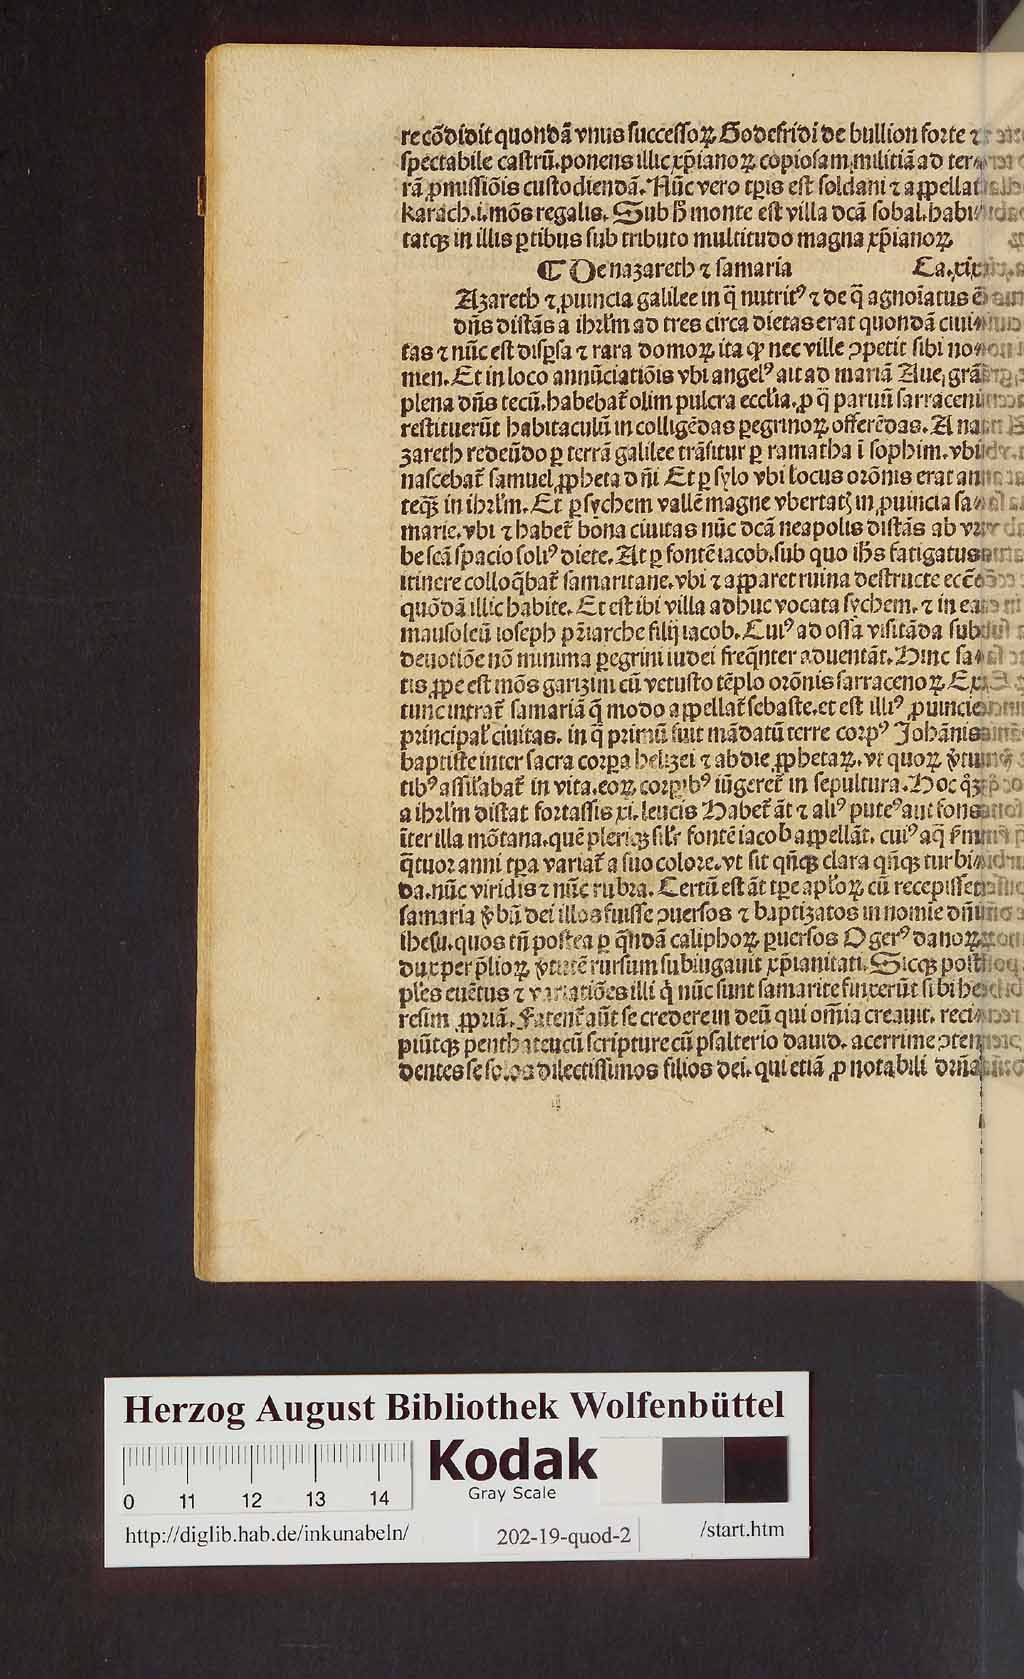 recõdidit quondã vnus successoꝝ Godefridi de bullion forte ⁊
spectabile castrũ. ponens illic xp̃ianoꝝ copiosam militiã ad ter⸗
rã ꝓmissiõis custodiendã. Nũc vero tꝑis est soldani ⁊ appellat̃
karach. i. mõs regalis. Sub h̃ monte est villa dcã sobal. habi⸗
tatqꝫ in illis ꝑtibus sub tributo multitudo magna xp̃ianoꝝ
¶ De nazareth ⁊ samaria Ca. xix
Azareth ⁊ ꝓuincia galilee in q̃ nutritꝰ ⁊ de q̃ agnoĩatus ẽ
dñs distãs a ihrl̃m ad tres circa dietas erat quondã ciui⸗
tas ⁊ nũc est disꝑsa ⁊ rara domoꝝ ita ꝙ nec ville ꝯpetit sibi no⸗
men. Et in loco annũciatiõis vbi angelꝰ ait ad mariã Aue, grã
plena dñs tecũ. habebat̃ olim pulcra eccl̃ia. ꝓ q̃ paruũ sarraceni
restituerũt habitaculũ in colligẽdas ꝑegrinoꝝ offerẽdas. A na
zareth redeũdo ꝑ terrã galilee trãsitur ꝑ ramatha ĩ sophim. vbi
nascebat̃ samuel ꝓpheta dñi Et ꝑ sylo vbi locus orõnis erat an
teqꝫ̃ in ihrl̃m. Et ꝑ sychem vallẽ magne vbertatꝭ in ꝓuincia sa⸗
marie. vbi ⁊ habet̃ bona ciuitas nũc dcã neapolis distãs ab vr
be scã spacio soliꝰ diete. At ꝑ fontẽ iacob. sub quo ihs̃ fatigatus
itinere colloq̃bat̃ samaritane. vbi ⁊ apparet ruina destructe eccẽ
quõdã illic habite. Et est ibi villa adhuc vocata sychem. ⁊ in ea
mausoleũ ioseph pr̃iarche filij iacob. Cuiꝰ ad ossa visitãda sub
deuotiõe nõ minima ꝑegrini iudei freq̃nter aduentãt. Hinc sa⸗
tis ꝓpe est mõs garizim cũ vetusto tẽplo orõnis sarracenoꝝ. Ex
tunc intrat̃ samariã q̃ modo appellat̃ sebaste. et est illiꝰ ꝓuincie
principal̃ ciuitas. in q̃ primũ fuit mãdatũ terre corpꝰ Johãnis
baptiste inter sacra corꝑa helizei ⁊ abdie ꝓphetaꝝ. vt quoꝝ v̾tu
tibꝰ assil̃abat̃ in vita. eoꝝ corpibꝰ iũgeret̃ in sepultura. Hoc
a ihrl̃m distat fortassis xi. leucis Habet̃ ãt ⁊ aliꝰ puteꝰ aut fons
ĩter illa mõtana. quẽ pleriqꝫ sil̃r fontẽ iacob appellãt. cuiꝰ aq̃
q̃tuor anni tꝑa variat̃ a suo colore. vt sit qñqꝫ clara qñqꝫ turbi⸗
da. nũc viridis ⁊ nũc rubra. Certũ est ãt tꝑe apl̃oꝝ cũ recepisset
samaria v̾bũ dei illos fuisse ꝯuersos ⁊ baptizatos in nomie dñi
ihesu. quos tñ postea ꝑ q̃ndã caliphoꝝ ꝑuersos Ogerꝰ danoꝝ
dux per p̃lioꝝ v̾tutẽ rursum subiugauit xp̃ianitati. Sicqꝫ post
ples euẽtus ⁊ variatiões illi q̇ nũc sunt samarite finxerũt sibi he
resim ꝓpriã. Fatent̃ aũt se credere in deũ qui om̃ia creauit. reci⸗
piũtqꝫ penthateucũ scripture cũ psalterio dauid. acerrime ꝯten
dentes se solos dilectissimos filios dei. qui etiã ꝓ notabili
Herzog August Bibliothek Wolfenbüttel
Kodak
Gray Scale
0 11 12 13 14
http://diglib.hab.de/inkunabeln/ 202-19-quod-2 /start.htm